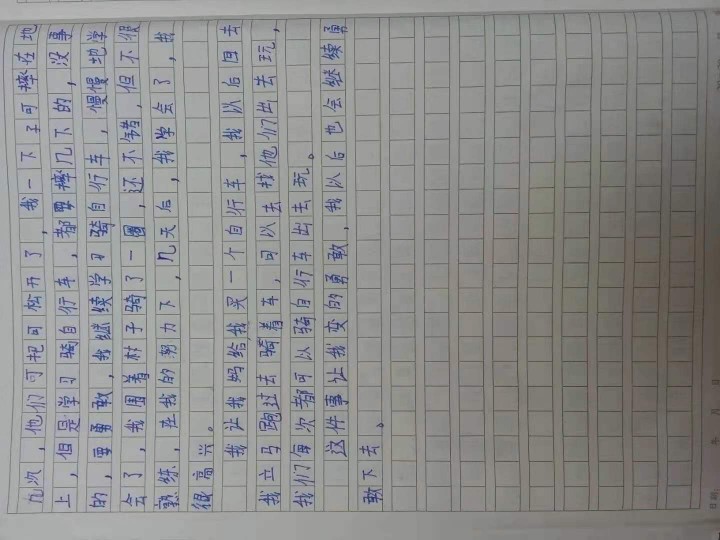 九次，他们可把可松开了，我一下子可摔在地
上，但是学习骑自行车，都要摔几下的，没事
的，要勇敢，我继续学习骑自行车，慢慢地学
会了，我围着村子骑了一圈，还不错，但不很
熟练，在我的努力下，几天后，我学会了，我
很高兴。
我让我妈给我买一个自行车，我以后回去
我立马跑过去骑着车，可以去找他们出去玩，
我们每次都可以骑自行车出去玩。
这件事让我变的勇敢，我以后也会继续勇
敢下去。